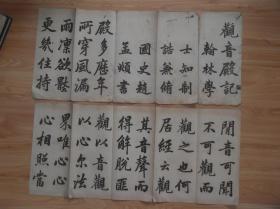 觀音殿記
翰林學
士知制
誥兼脩
國史趙
孟頫書
殿多歷年
所穿風漏
雨凛欲壓
更幾住持
聞音可聞
不可觀而
觀之也何
居經云觀
其音聲而
得解脫匪
觀以音觀
以心尔法
界唯心心
心相照當